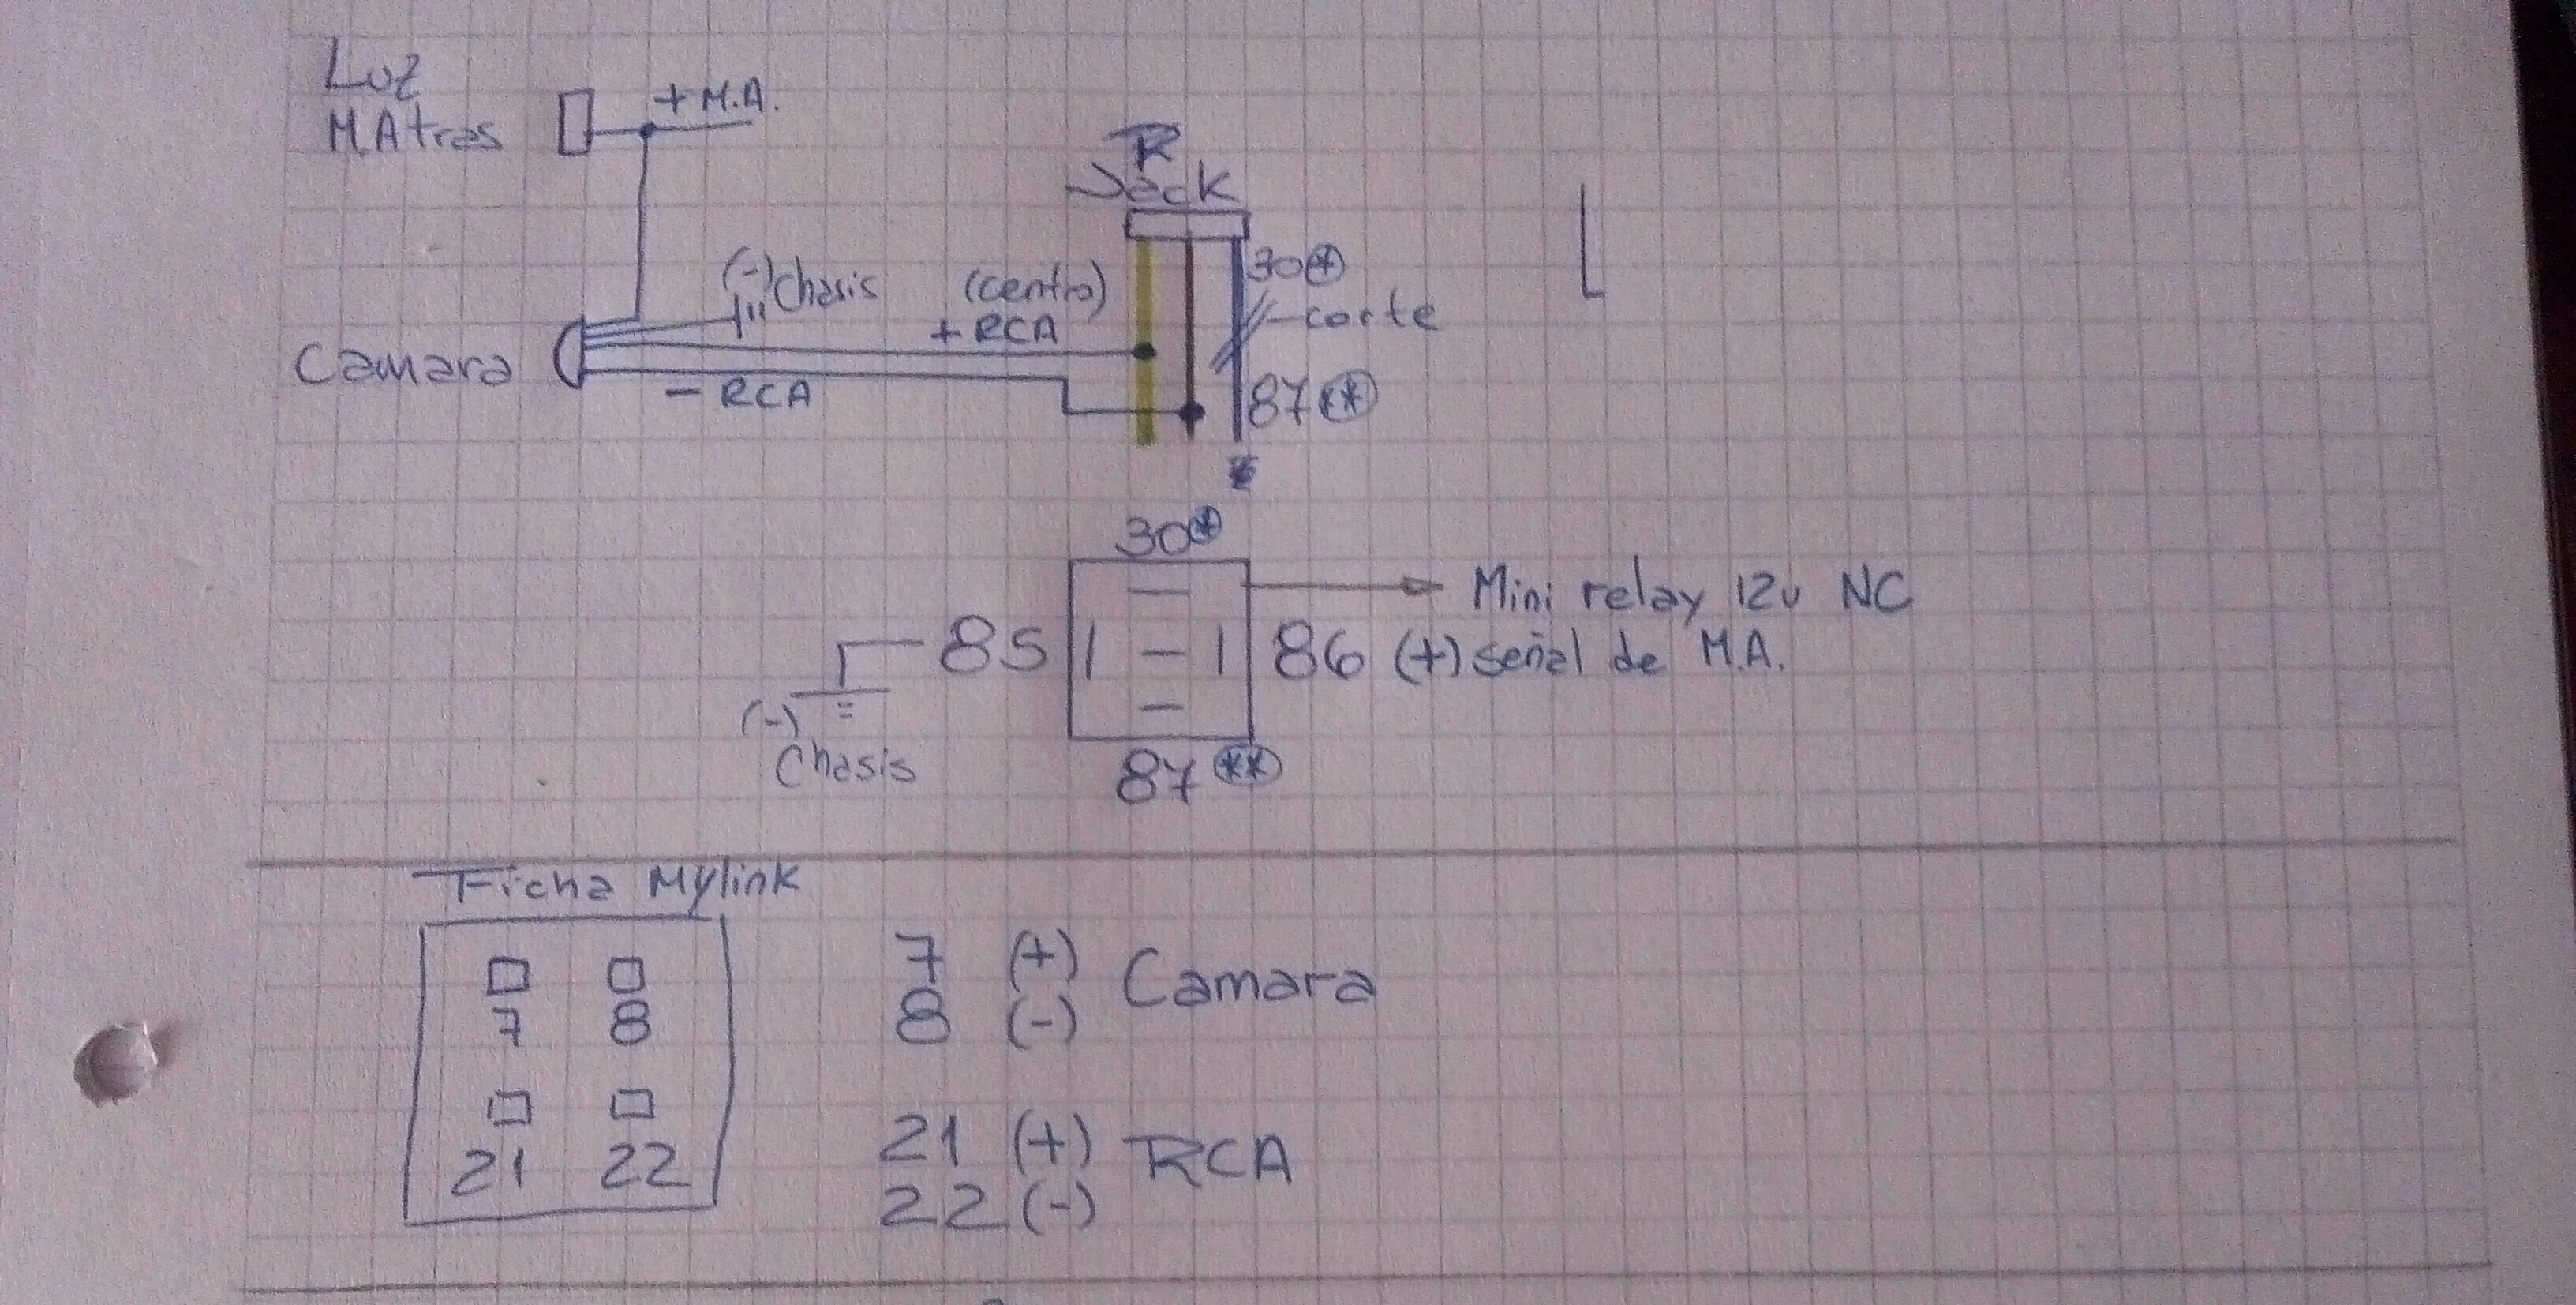 Luz
M.Atras
+ M.A.
R
Jack
(-) Chasis
(centro)
+ RCA
30(*)
corte
Camara
- RCA
87(**)
*
30(*)
Mini relay 12v NC
85
86 (+) señal de M.A.
(-)
Chasis
87(**)
Ficha Mylink
7 8
21 22
7 (+)
8 (-)
Camara
21 (+)
22 (-)
RCA